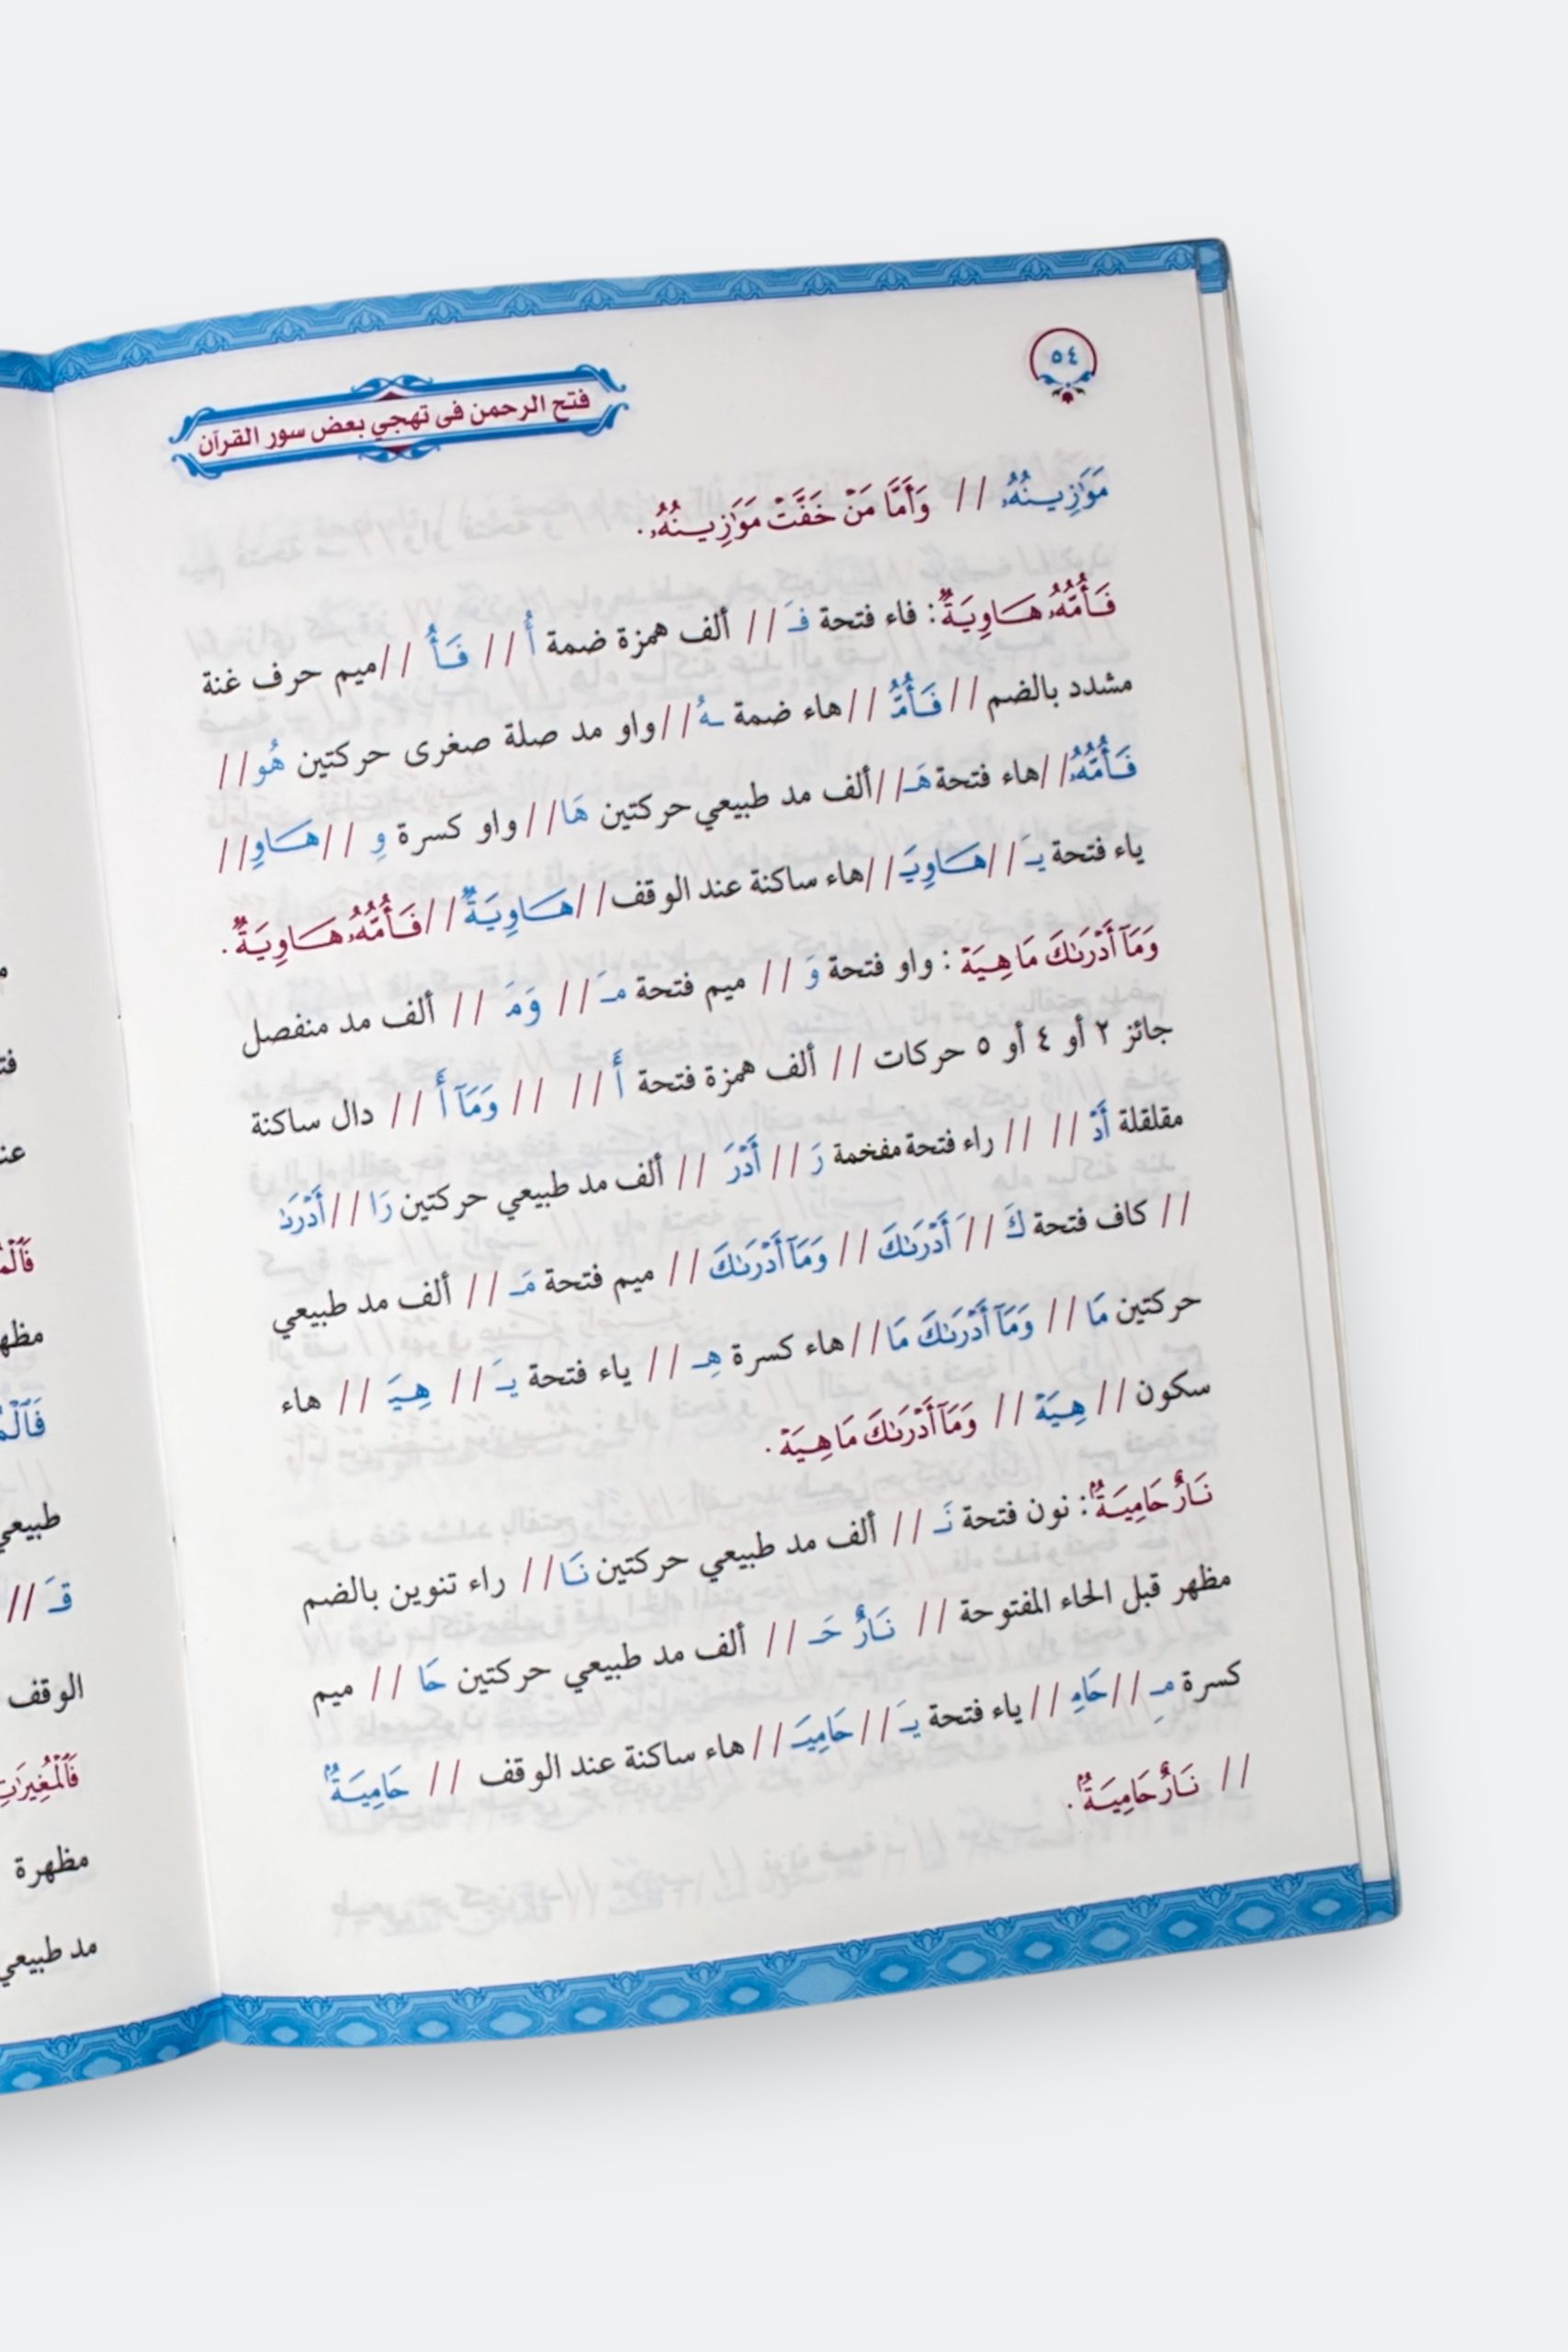 ٥٤
فتح الرحمن فى تهجي بعض سور القرآن
مَوَٰزِينُهُۥ // وَأَمَّا مَنۡ خَفَّتۡ مَوَٰزِينُهُۥ .
فَأُمُّهُۥ هَاوِيَةٞ : فاء فتحة فَـ // ألف همزة ضمة أُ // فَأُ // ميم حرف غنة
مشدد بالضم // فَأُمُّ // هاء ضمة ـهُ // واو مد صلة صغرى حركتين هُو //
فَأُمُّهُۥ // هاء فتحة هَـ // ألف مد طبيعي حركتين هَا // واو كسرة وِ // هَاوِ //
ياء فتحة يَـ // هَاوِيَـ // هاء ساكنة عند الوقف // هَاوِيَةٞ // فَأُمُّهُۥ هَاوِيَةٞ .
وَمَآ أَدۡرَىٰكَ مَا هِيَهۡ : واو فتحة وَ // ميم فتحة مَـ // وَمَـ // ألف مد منفصل
جائز ٢ أو ٤ أو ٥ حركات // ألف همزة فتحة أَ // // وَمَآ أَ // دال ساكنة
مقلقلة أَدۡ // // راء فتحة مفخمة رَ // أَدۡرَ // ألف مد طبيعي حركتين رَا // أَدۡرَىٰ
// كاف فتحة كَ // أَدۡرَىٰكَ // وَمَآ أَدۡرَىٰكَ // ميم فتحة مَـ // ألف مد طبيعي
حركتين مَا // وَمَآ أَدۡرَىٰكَ مَا // هاء كسرة هِـ // ياء فتحة يَـ // هِيَـ // هاء
سكون // هِيَهۡ // وَمَآ أَدۡرَىٰكَ مَا هِيَهۡ .
نَارٌ حَامِيَةُۢ : نون فتحة نَـ // ألف مد طبيعي حركتين نَا // راء تنوين بالضم
مظهر قبل الحاء المفتوحة // نَارٌ حَـ // ألف مد طبيعي حركتين حَا // ميم
كسرة مِـ // حَامِـ // ياء فتحة يَـ // حَامِيَـ // هاء ساكنة عند الوقف // حَامِيَةُۢ
// نَارٌ حَامِيَةُۢ .
عند
مظهر
طبيعي
قَـ //
الوقف
فَٱلۡمُغِيرَٰتِ
مظهرة
مد طبيعي